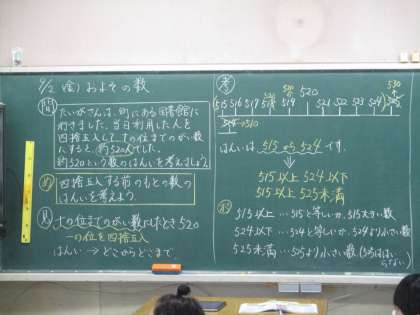 9/2 (金) およその数
問 たいがさんは、町にある図書館に
行きました。当日利用した人を
四捨五入して十の位までのがい数
にすると、約520人でした。
約520という数のはんいを考えましょう。
め 四捨五入する前のもとの数の
はんいを考えよう。
見 十の位までのがい数にしたとき520
一の位を四捨五入
はんい → どこからどこまで
考
520 530
515 516 517 518 519 520 521 522 523 524 525
514→510
はんいは、515から524です。
515以上 524以下
515以上 525未満
515以上…515と等しいか、515より大きい数
524以下…524と等しいか、524より小さい数
525未満…525より小さい数(525ははいらない)